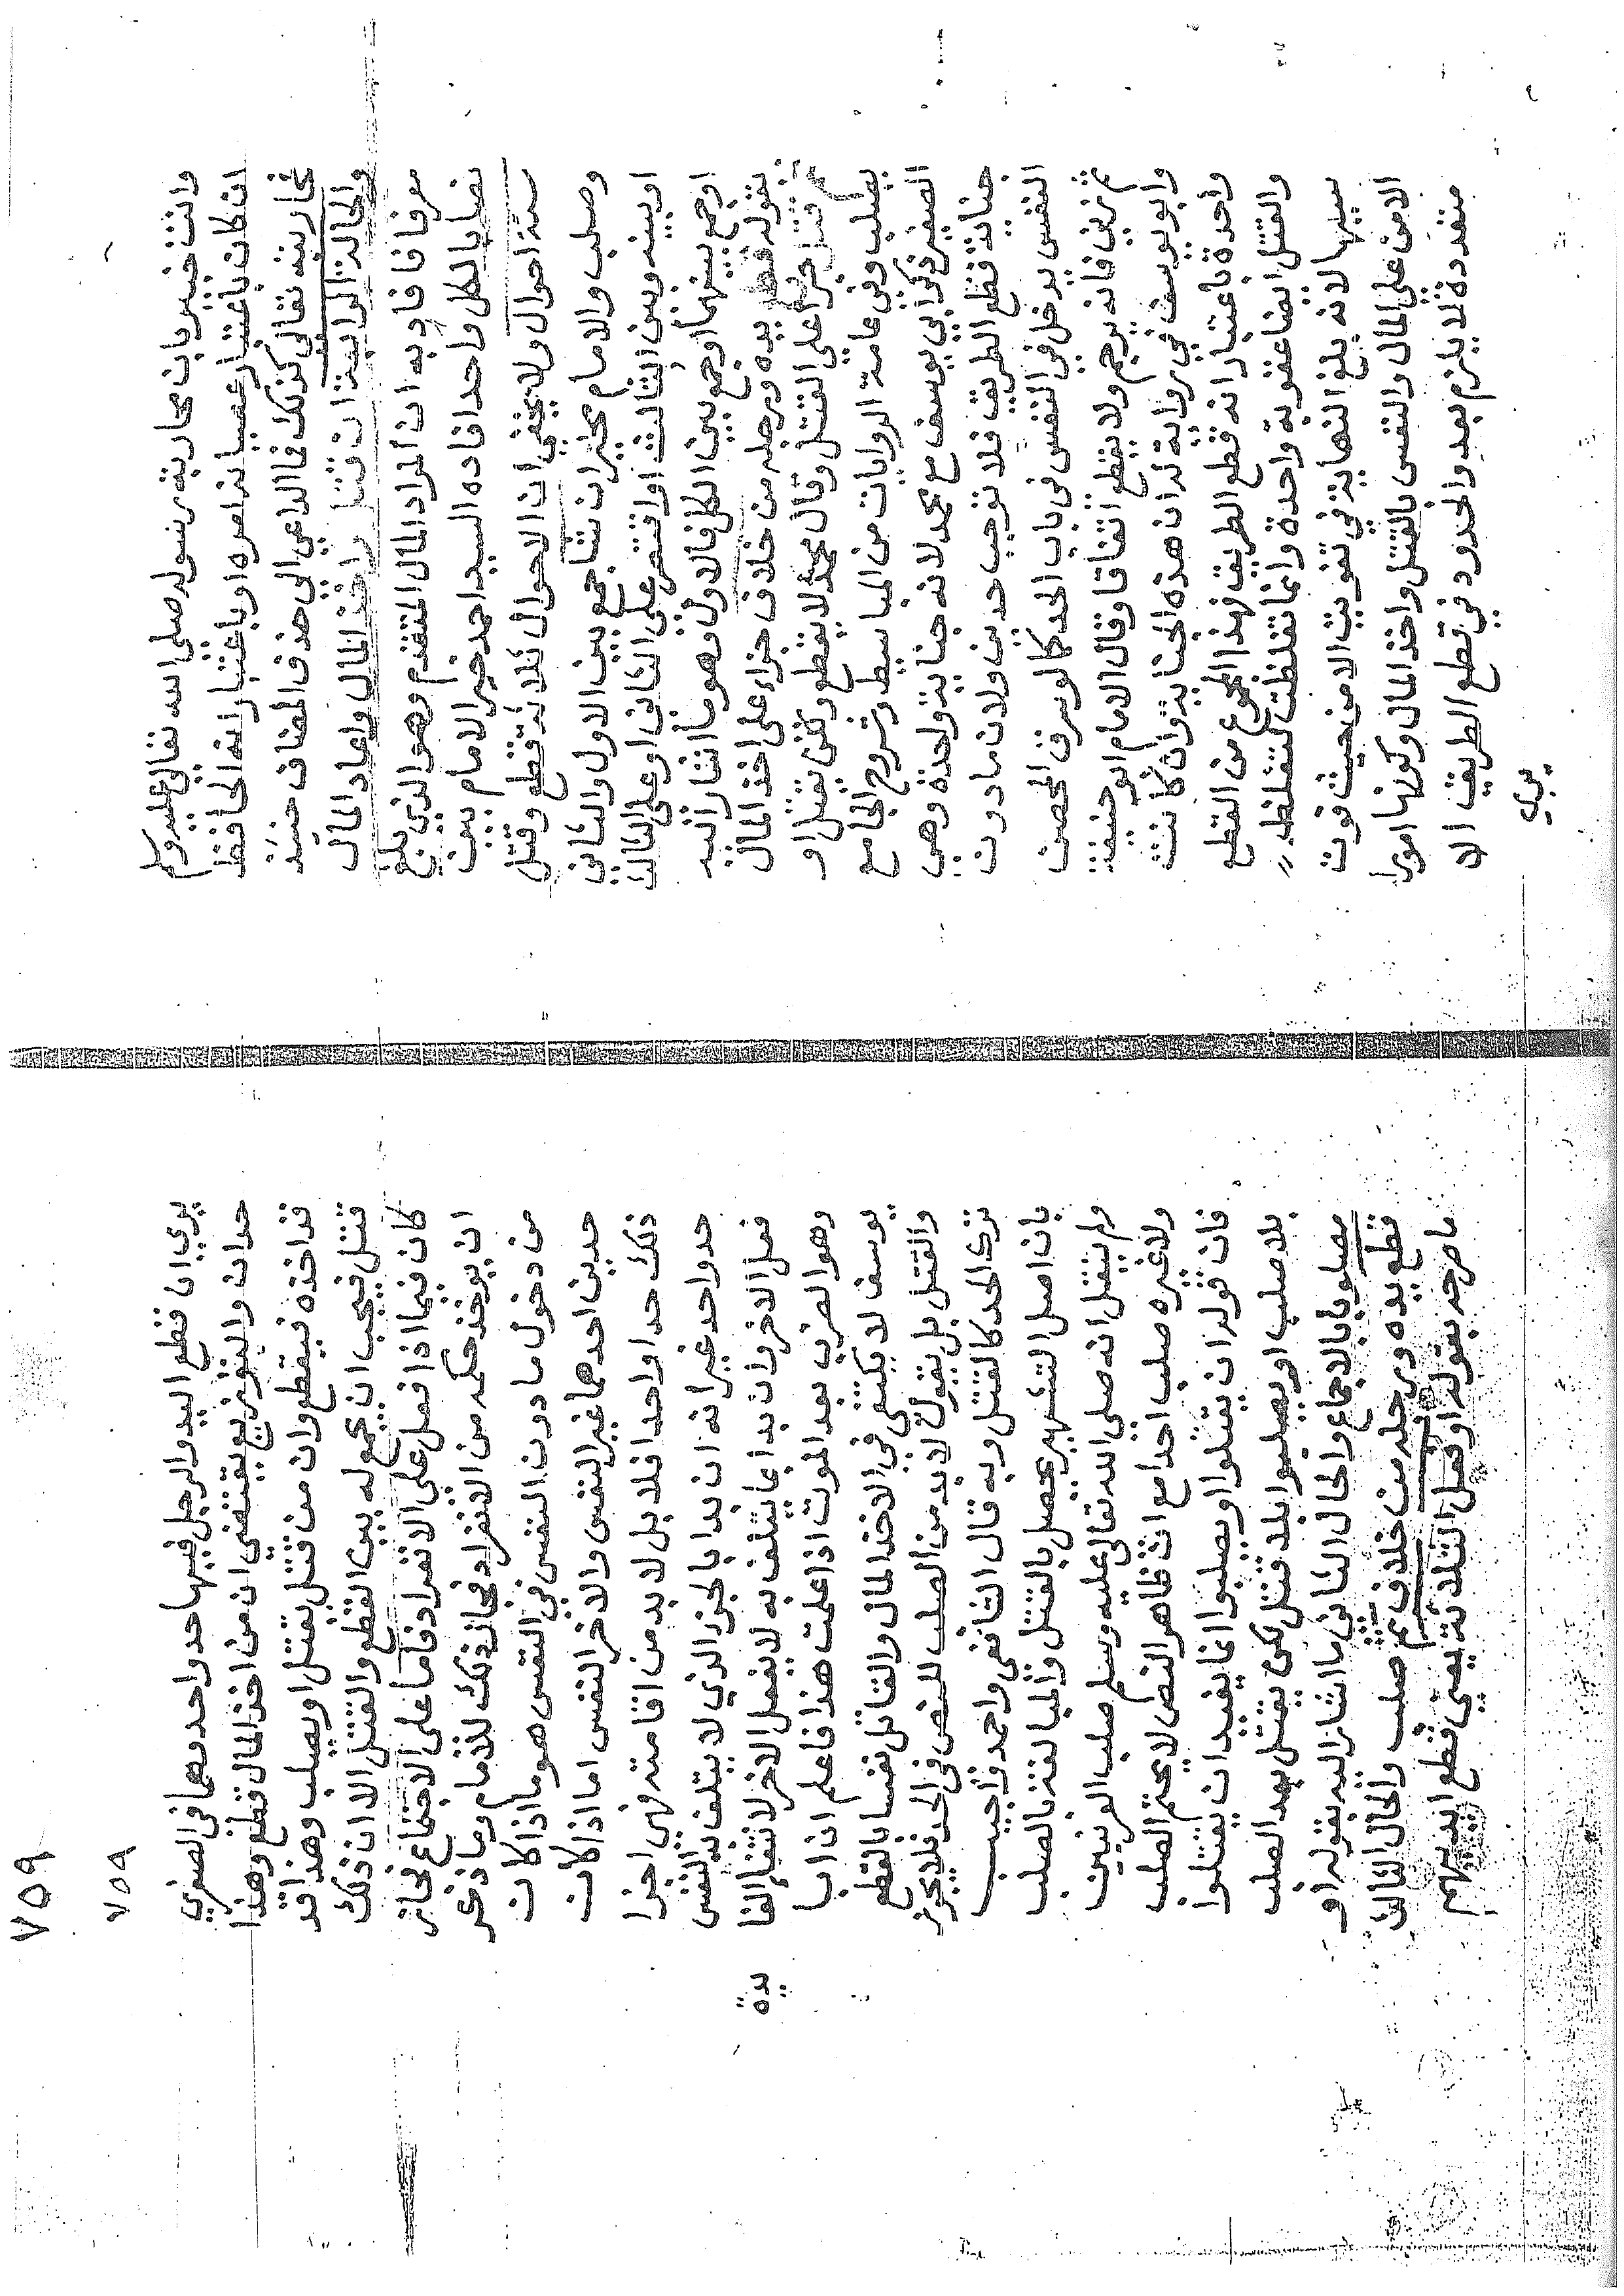 وانت خبير بان محاربة رسوله صلى الله تعالى عليه وسلم
ان كان باعتبار عصيانه امره او باعتبار انه الحافظ
محاربته تعالى كذلك فما الداعي الى حذف المضاف حينئذ
والحالة الرابعة ان قتل واخذ المال واعاد المال
معرفا فافاد به ان المراد المال المتقدم وهو الذي بلغ
نصابا لكل واحد افاده السيد احمد خير الامام بين
ستة احوال ولا يخفى ان الاحوال ثلاثة قطع وقتل
وصلب والامام مخير ان شاء جمع بين الاول والثاني
او بينه وبين الثالث او اقتصر على الثاني او على الثالث
او جمع بينهما او جمع بين الكل فالاول وهو ما اشار اليه
بقوله قطع يده ورجله من خلاف جزاء على اخذ المال
ثم قتل جزاء على القتل وقال محمد لا يقطع ولكن يقتل او
يصلب وفي عامة الروايات من المباسيط وشروح الجامع
الصغير ذكر ابي يوسف مع محمد لانه جناية واحدة وهي
جناية قطع الطريق فلا توجب حدين ولان ما دون
النفس يدخل في النفس في باب الحد كما لو سرق المحصن
ثم زنى فانه يرجم ولا يقطع اتفاقا وقال الامام ابو حنيفة
وابو يوسف في رواية له ان هذه الجناية وان كانت
واحدة باعتبار انه قطع الطريق فهذا المجموع من القطع
والقتل ايضا عقوبة واحدة وانما تغلظت لتغلظ
سببها لانه بلغ النهاية في تفويت الامن حيث فوت
الامن على المال والنفس بالقتل واخذ المال وكونها امورا
متعددة لا يلزم بعد والحدود في قطع الطريق الا
يرى
٧٥٩
٧٥٩
يرى ان قطع اليد والرجل فيها حد واحد وهما في الصغرى
حدان والتفريع يقتضي ان من اخذ المال قطع وهذا
قد اخذه فيقطع وان من قتل يقتل او يصلب وهذا قد
قتل فيجب ان يجمع له بين القطع والقتل الا ان ذلك
كان فيما اذا فعل على الانفراد فاما على الاجتماع فجائز
ان يؤخذ حكمه من الانفراد فجاز ذلك للامام وما ذكر
من دخول ما دون النفس في النفس هو ما اذا كان
حدين احدهما غير النفس والاخر النفس اما اذا كان
ذلك حدا واحدا فلا بل لا بد من اقامته فهي اجزا
حد واحد غير انه ان بدا بالجزء الذي لا يتلف به النفس
فعل الاخر وان بدا بما يتلف به لا يفعل الاخر لانتفاء الفا
يدة
وهو الضرب بعد الموت اذا علمت هذا فاعلم ان ابا
يوسف لا يكتفي في الاخذ المال والقاتل نفسا بالقطع
والقتل بل يقول لا بد من الصلب للنص في الحد فلا يجوز
ترك الحد كالقتل وبه قال الشافعي واحمد واجيب
بان اصل التشهير يحصل بالقتل والمبالغة بالصلب
ولم ينقل انه صلى الله تعالى عليه وسلم صلب العرنيين
ولا غيره صلب احدا مع ان ظاهر النص لا يحتم الصلب
فان قوله ان يقتلوا او يصلبوا انما يفيد ان يقتلوا
بلا صلب او يصلبوا بلا قتل لكن يقتل بهد الصلب
مصلوبا بالاجماع والحال الثاني ما اشار اليه بقوله او
قطع يده ورجله من خلاف ثم صلب والحال الثالث
ما صرح بقوله او فعل الثلاثة يعني قطع ايديهم